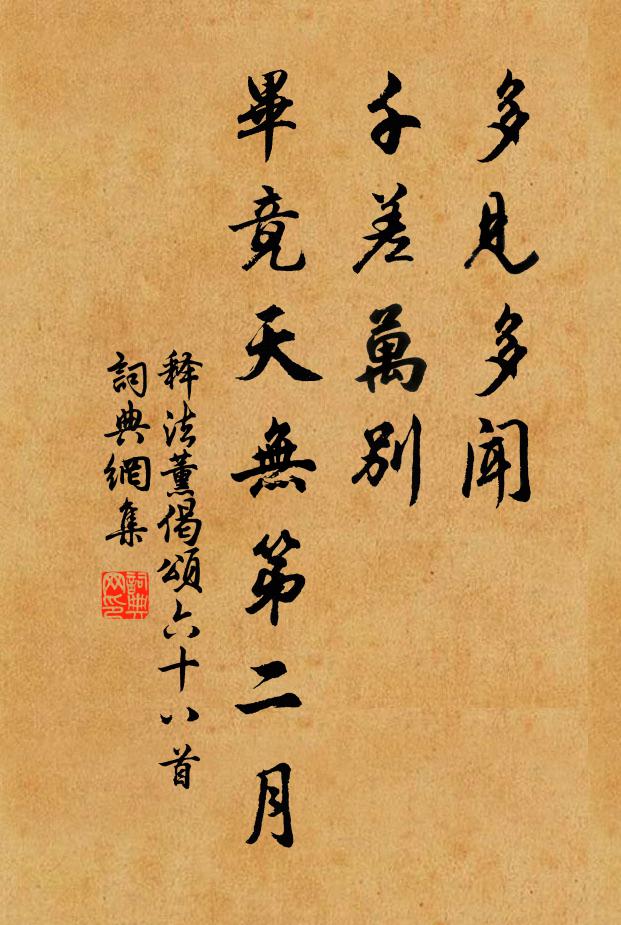 多見多聞
千差萬別
畢竟天無第二月
释法薰偈頌六十八首
詞典網集
詞典网印